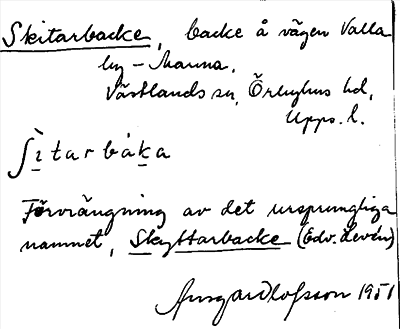 Skitarbacke, backe å vägen Valla
by – Manna,
Västlands sn, Örbyhus hd,
Upps. l.
ʃìtarbàka
Förvrängning av det ursprungliga
namnet, Skyttarbacke (Edv. Levén)
Olofsson 1951